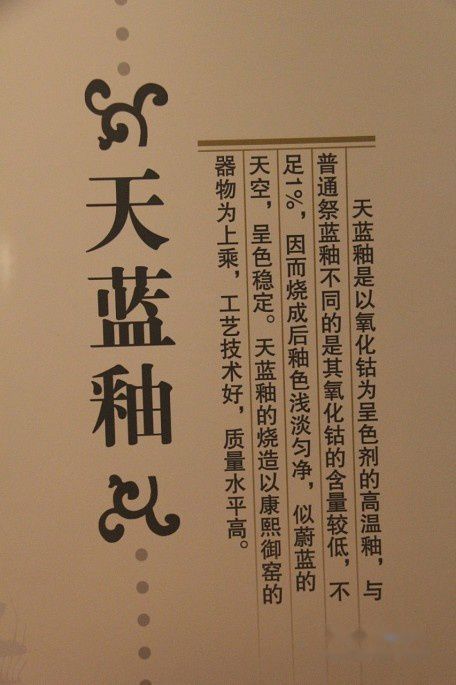 天蓝釉
天蓝釉是以氧化钴为呈色剂的高温釉，与
普通祭蓝釉不同的是其氧化钴的含量较低，不
足1%，因而烧成后釉色浅淡匀净，似蔚蓝的
天空，呈色稳定。天蓝釉的烧造以康熙御窑的
器物为上乘，工艺技术好，质量水平高。